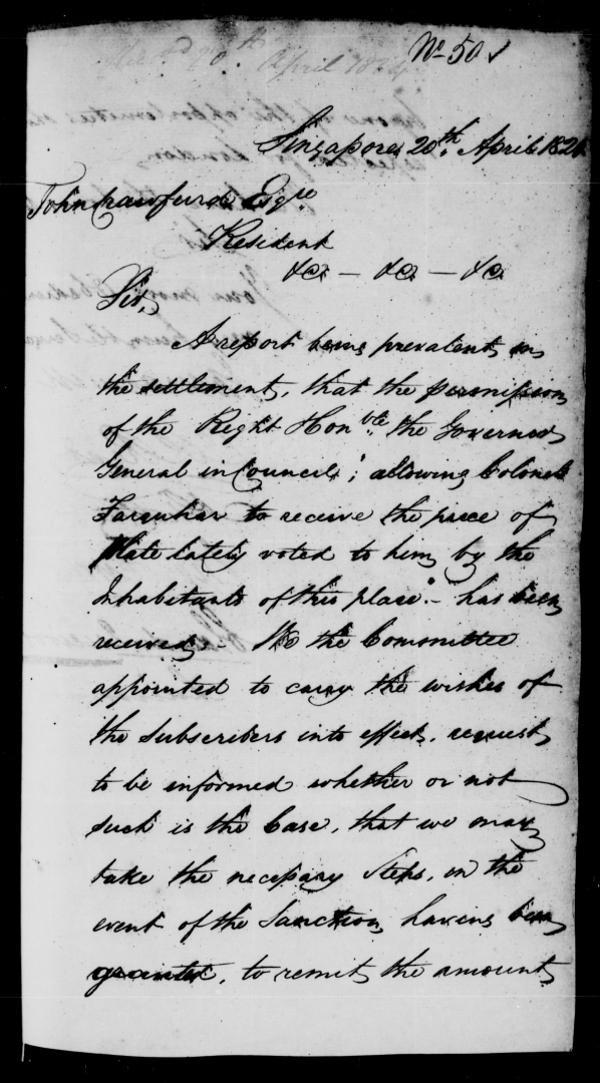 No 50
Singapore 20th April 1824
John Crawfurd Esqre
Resident
&c — &c — &c
Sir,
A report being prevalent in
the settlement, that the permission
of the Right Honble the Governor
General in Council; allowing Colonel
Farquhar to receive the piece of
Plate lately voted to him by the
Inhabitants of this place - has been
received - We the Committee
appointed to carry the wishes of
the Subscribers into effect, request
to be informed whether or not
such is the Case, that we may
take the necessary Steps, in the
event of the Sanction having been
granted, to remit the amount